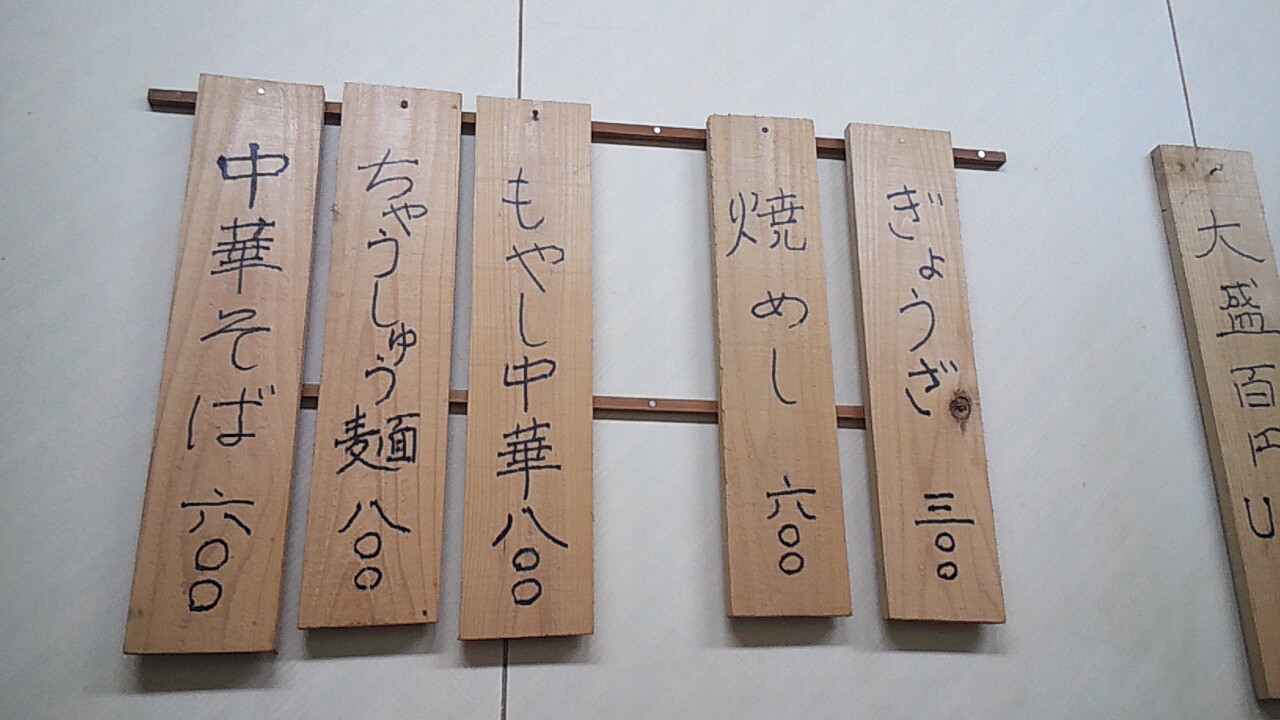 中華そば 六〇〇
ちゃうしゅう麺 八〇〇
もやし中華 八〇〇
焼めし 六〇〇
ぎょうざ 三〇〇
大盛百円